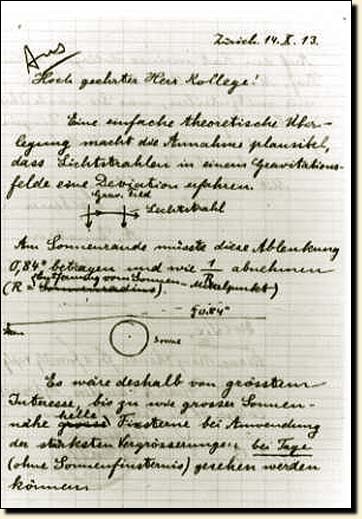 Zürich. 14. X. 13.
Hoch geehrter Herr Kollege!
Eine einfache theoretische Über-
legung macht die Annahme plausibel,
dass Lichtstrahlen in einem Gravitations-
felde eine Deviation erfahren.
Grav. Feld
Lichtstrahl
Am Sonnenrande müsste diese Ablenkung
0,84" betragen und wie 1/R abnehmen
(R = Sonnenradius) (Entfernung vom Sonnen-Mittelpunkt)
0.84"
Stern
Sonne
Es wäre deshalb von grösstem
Interesse, bis zu wie grosser Sonnen-
nähe grosse helle Fixsterne bei Anwendung
der stärksten Vergrösserungen bei Tage
(ohne Sonnenfinsternis) gesehen werden
können.